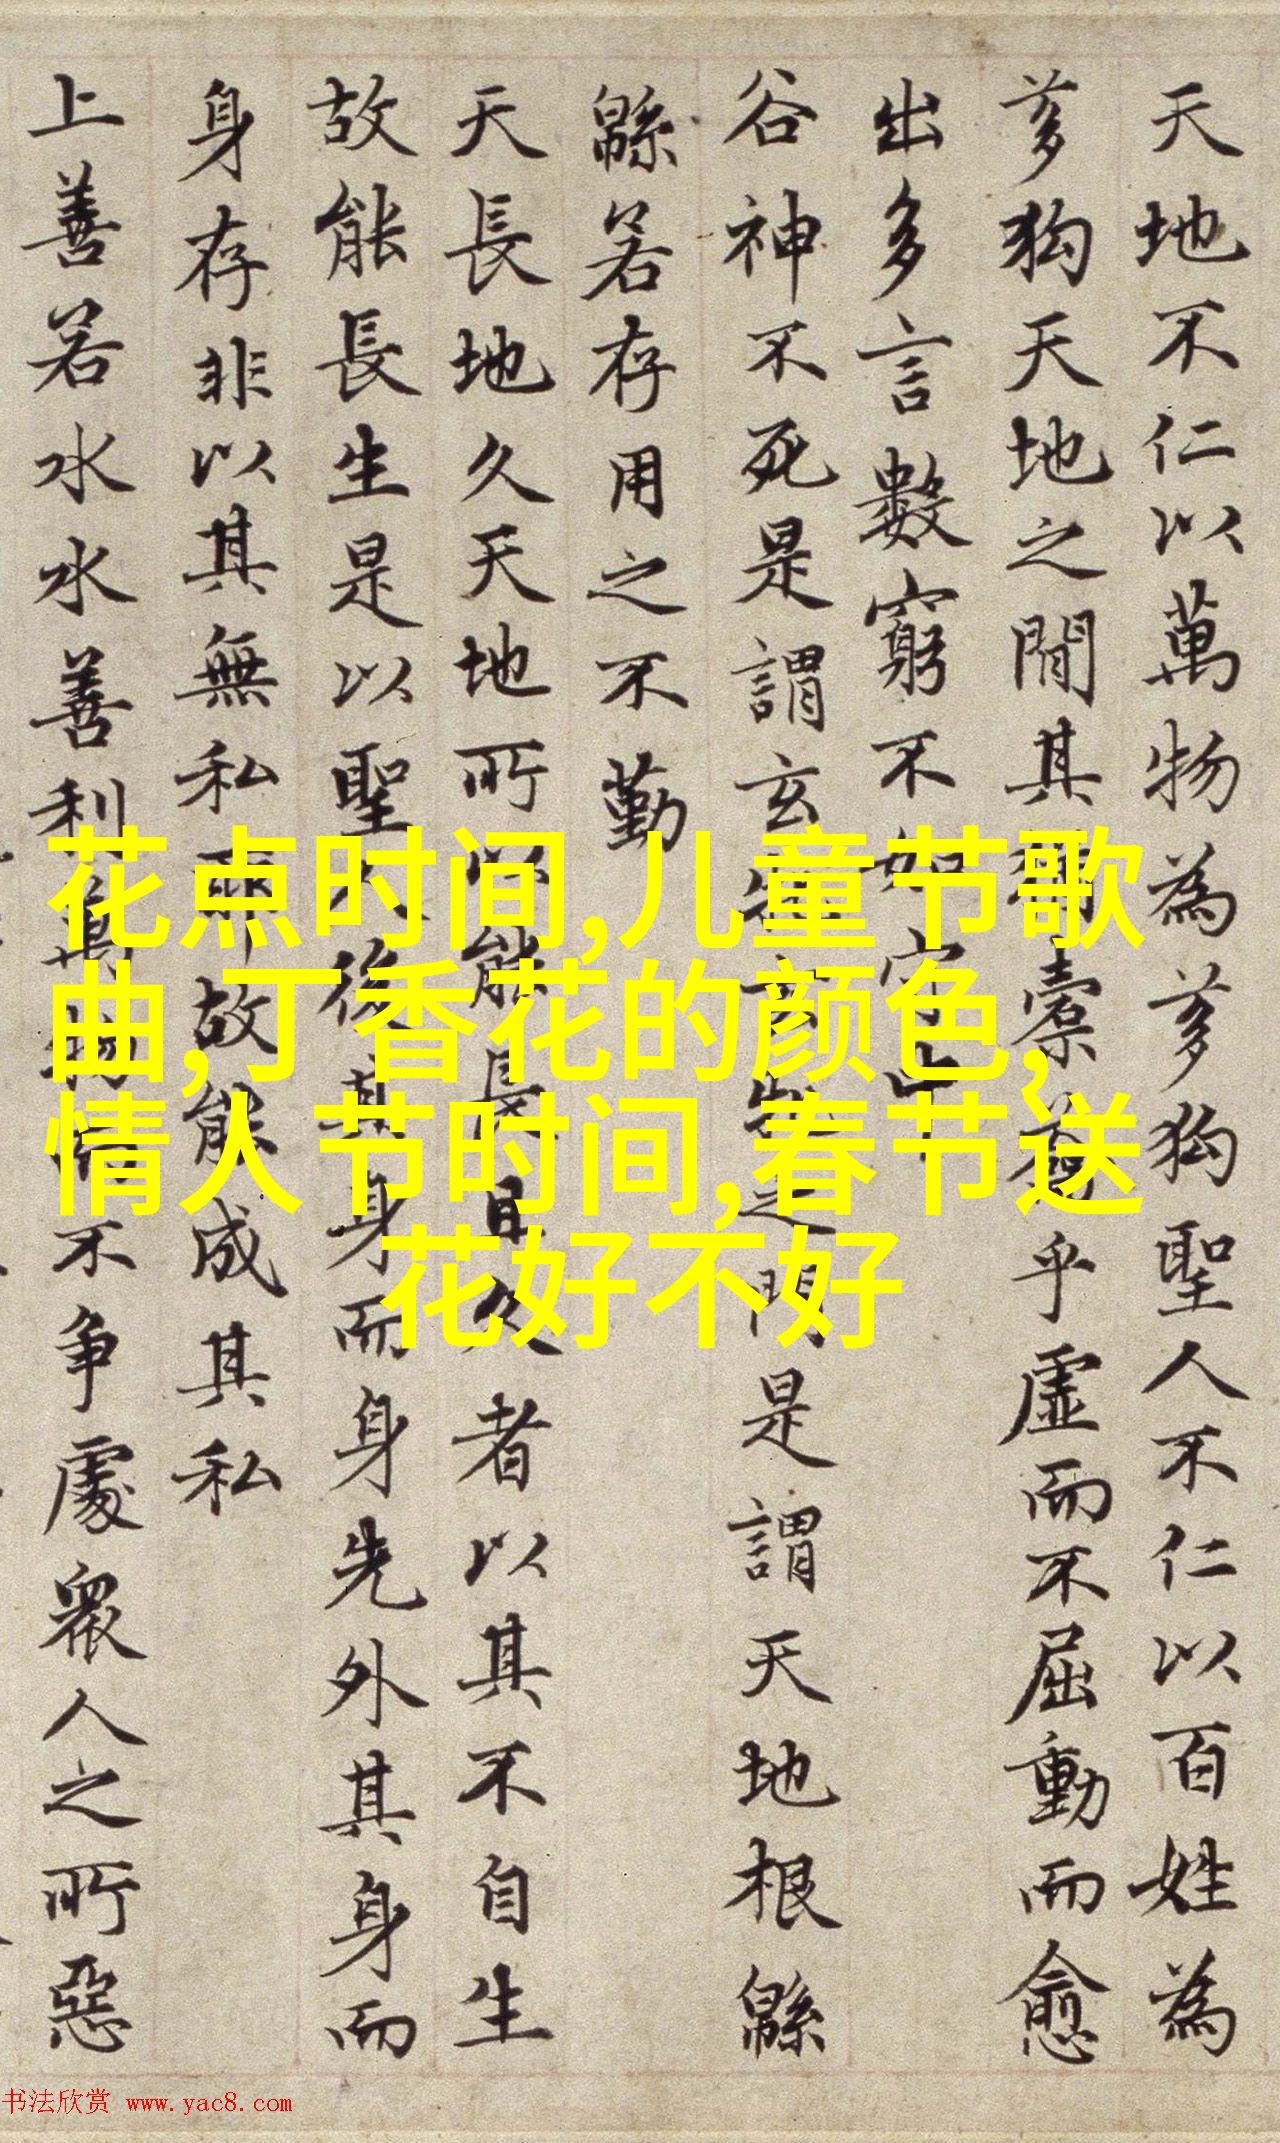 天地不仁以萬物為芻狗聖人不仁以百姓為
芻狗天地之間其猶橐籥乎虛而不屈動而愈
出多言數窮不如守中
谷神不死是謂玄牝玄牝之門是謂天地根緜
緜若存用之不勤
天長地久天地所以能長且久者以其不自生
故能長生是以聖人後其身而身先外其身而
身存非以其無私耶故能成其私
上善若水水善利萬物而不争處眾人之所惡
花点时间,儿童节歌
曲,丁香花的颜色,
情人节时间,春节送
花好不好
书法欣赏 www.yac8.com